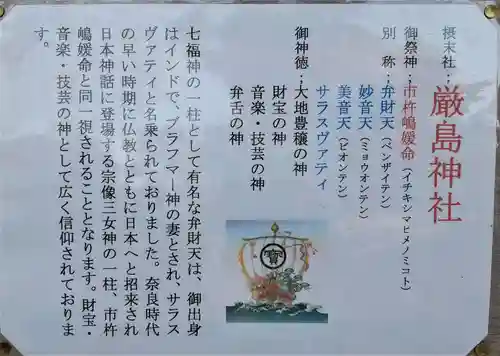 摂末社：厳島神社
御祭神：市杵嶋媛命（イチキシマヒメノミコト）
別　称：弁財天（ベンザイテン）
妙音天（ミョウオンテン）
美音天（ビオンテン）
サラスヴァティ
御神徳：大地豊穣の神
財宝の神
音楽・技芸の神
弁舌の神
寳
七福神の一柱として有名な弁財天は、御出身
はインドで、ブラフマー神の妻とされ、サラス
ヴァティと名乗られておりました。奈良時代
の早い時期に仏教とともに日本へと招来され
日本神話に登場する宗像三女神の一柱、市杵
嶋媛命と同一視されることとなります。財宝・
音楽・技芸の神として広く信仰されておりま
す。